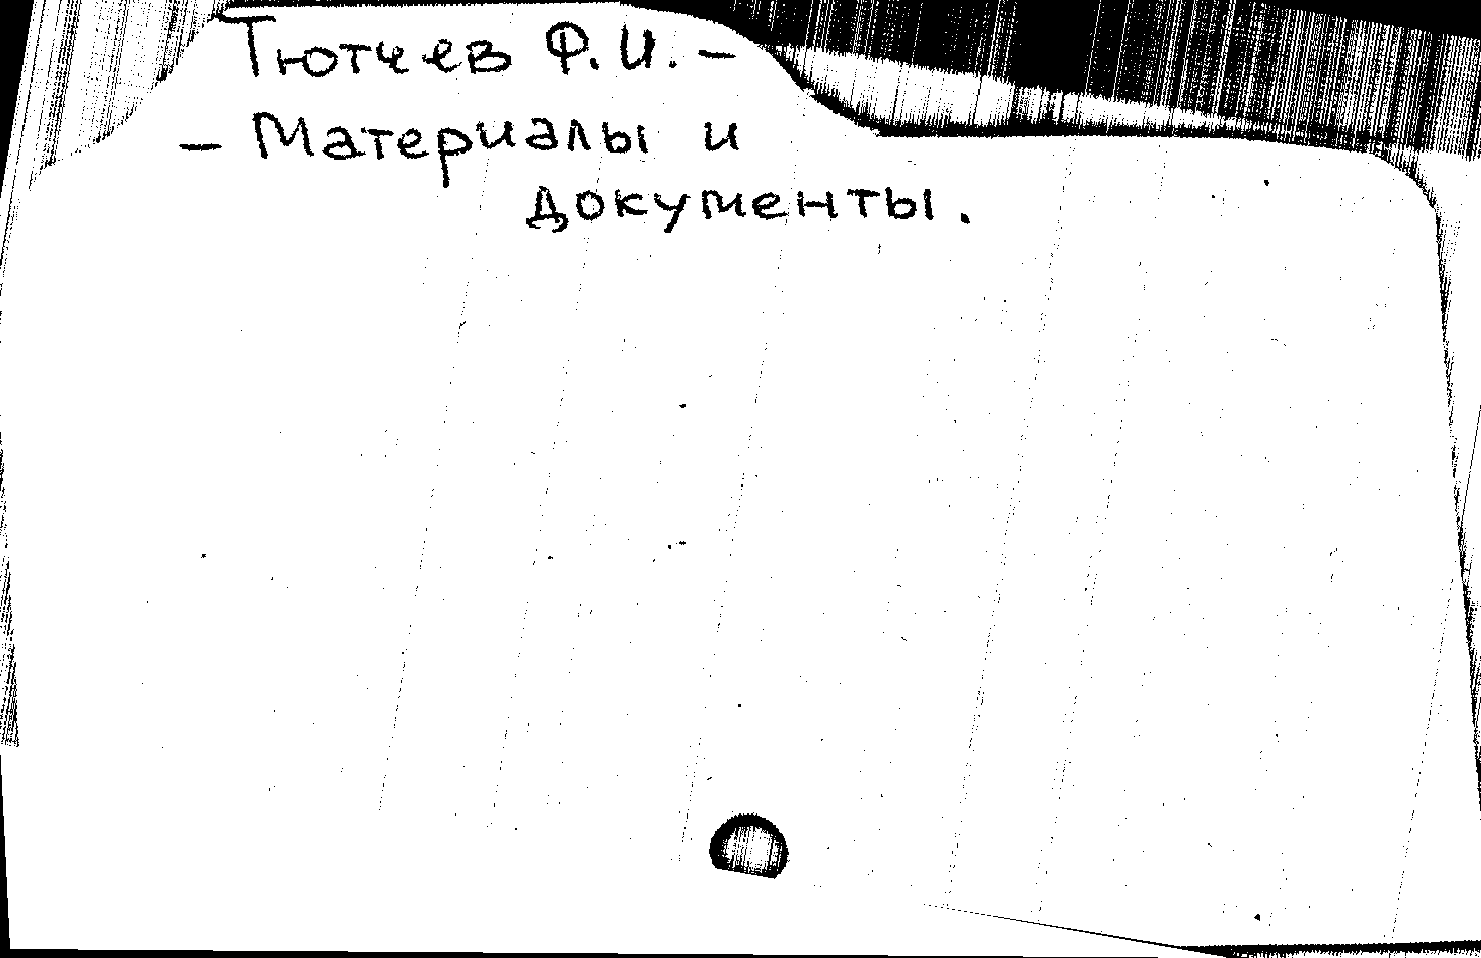 Тютчев Ф.И. –
– Материалы и
документы.